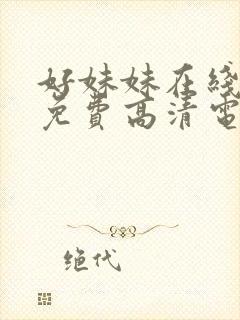 好妹妹在线
免費高清電
绝代